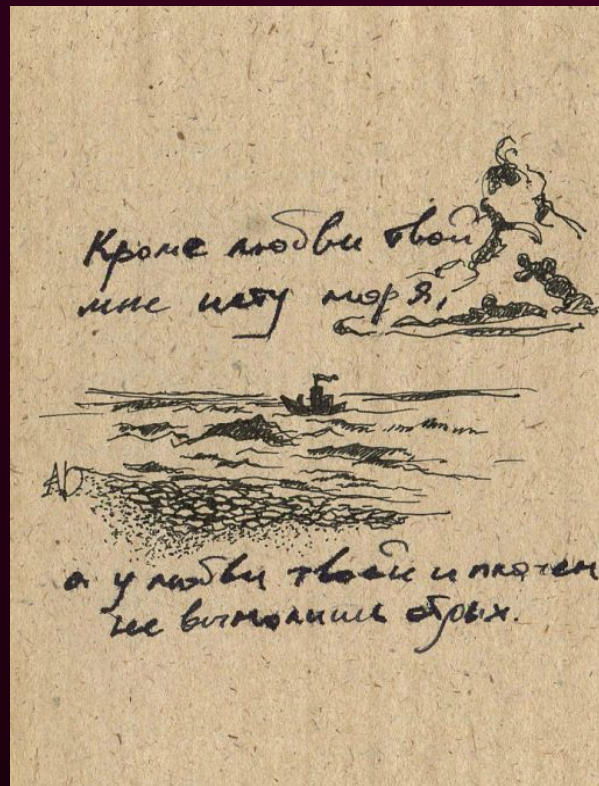 Кроме любви твоей
мне нету моря,
АБ.
а у любви твоей и плачем
не вымолишь отдых.